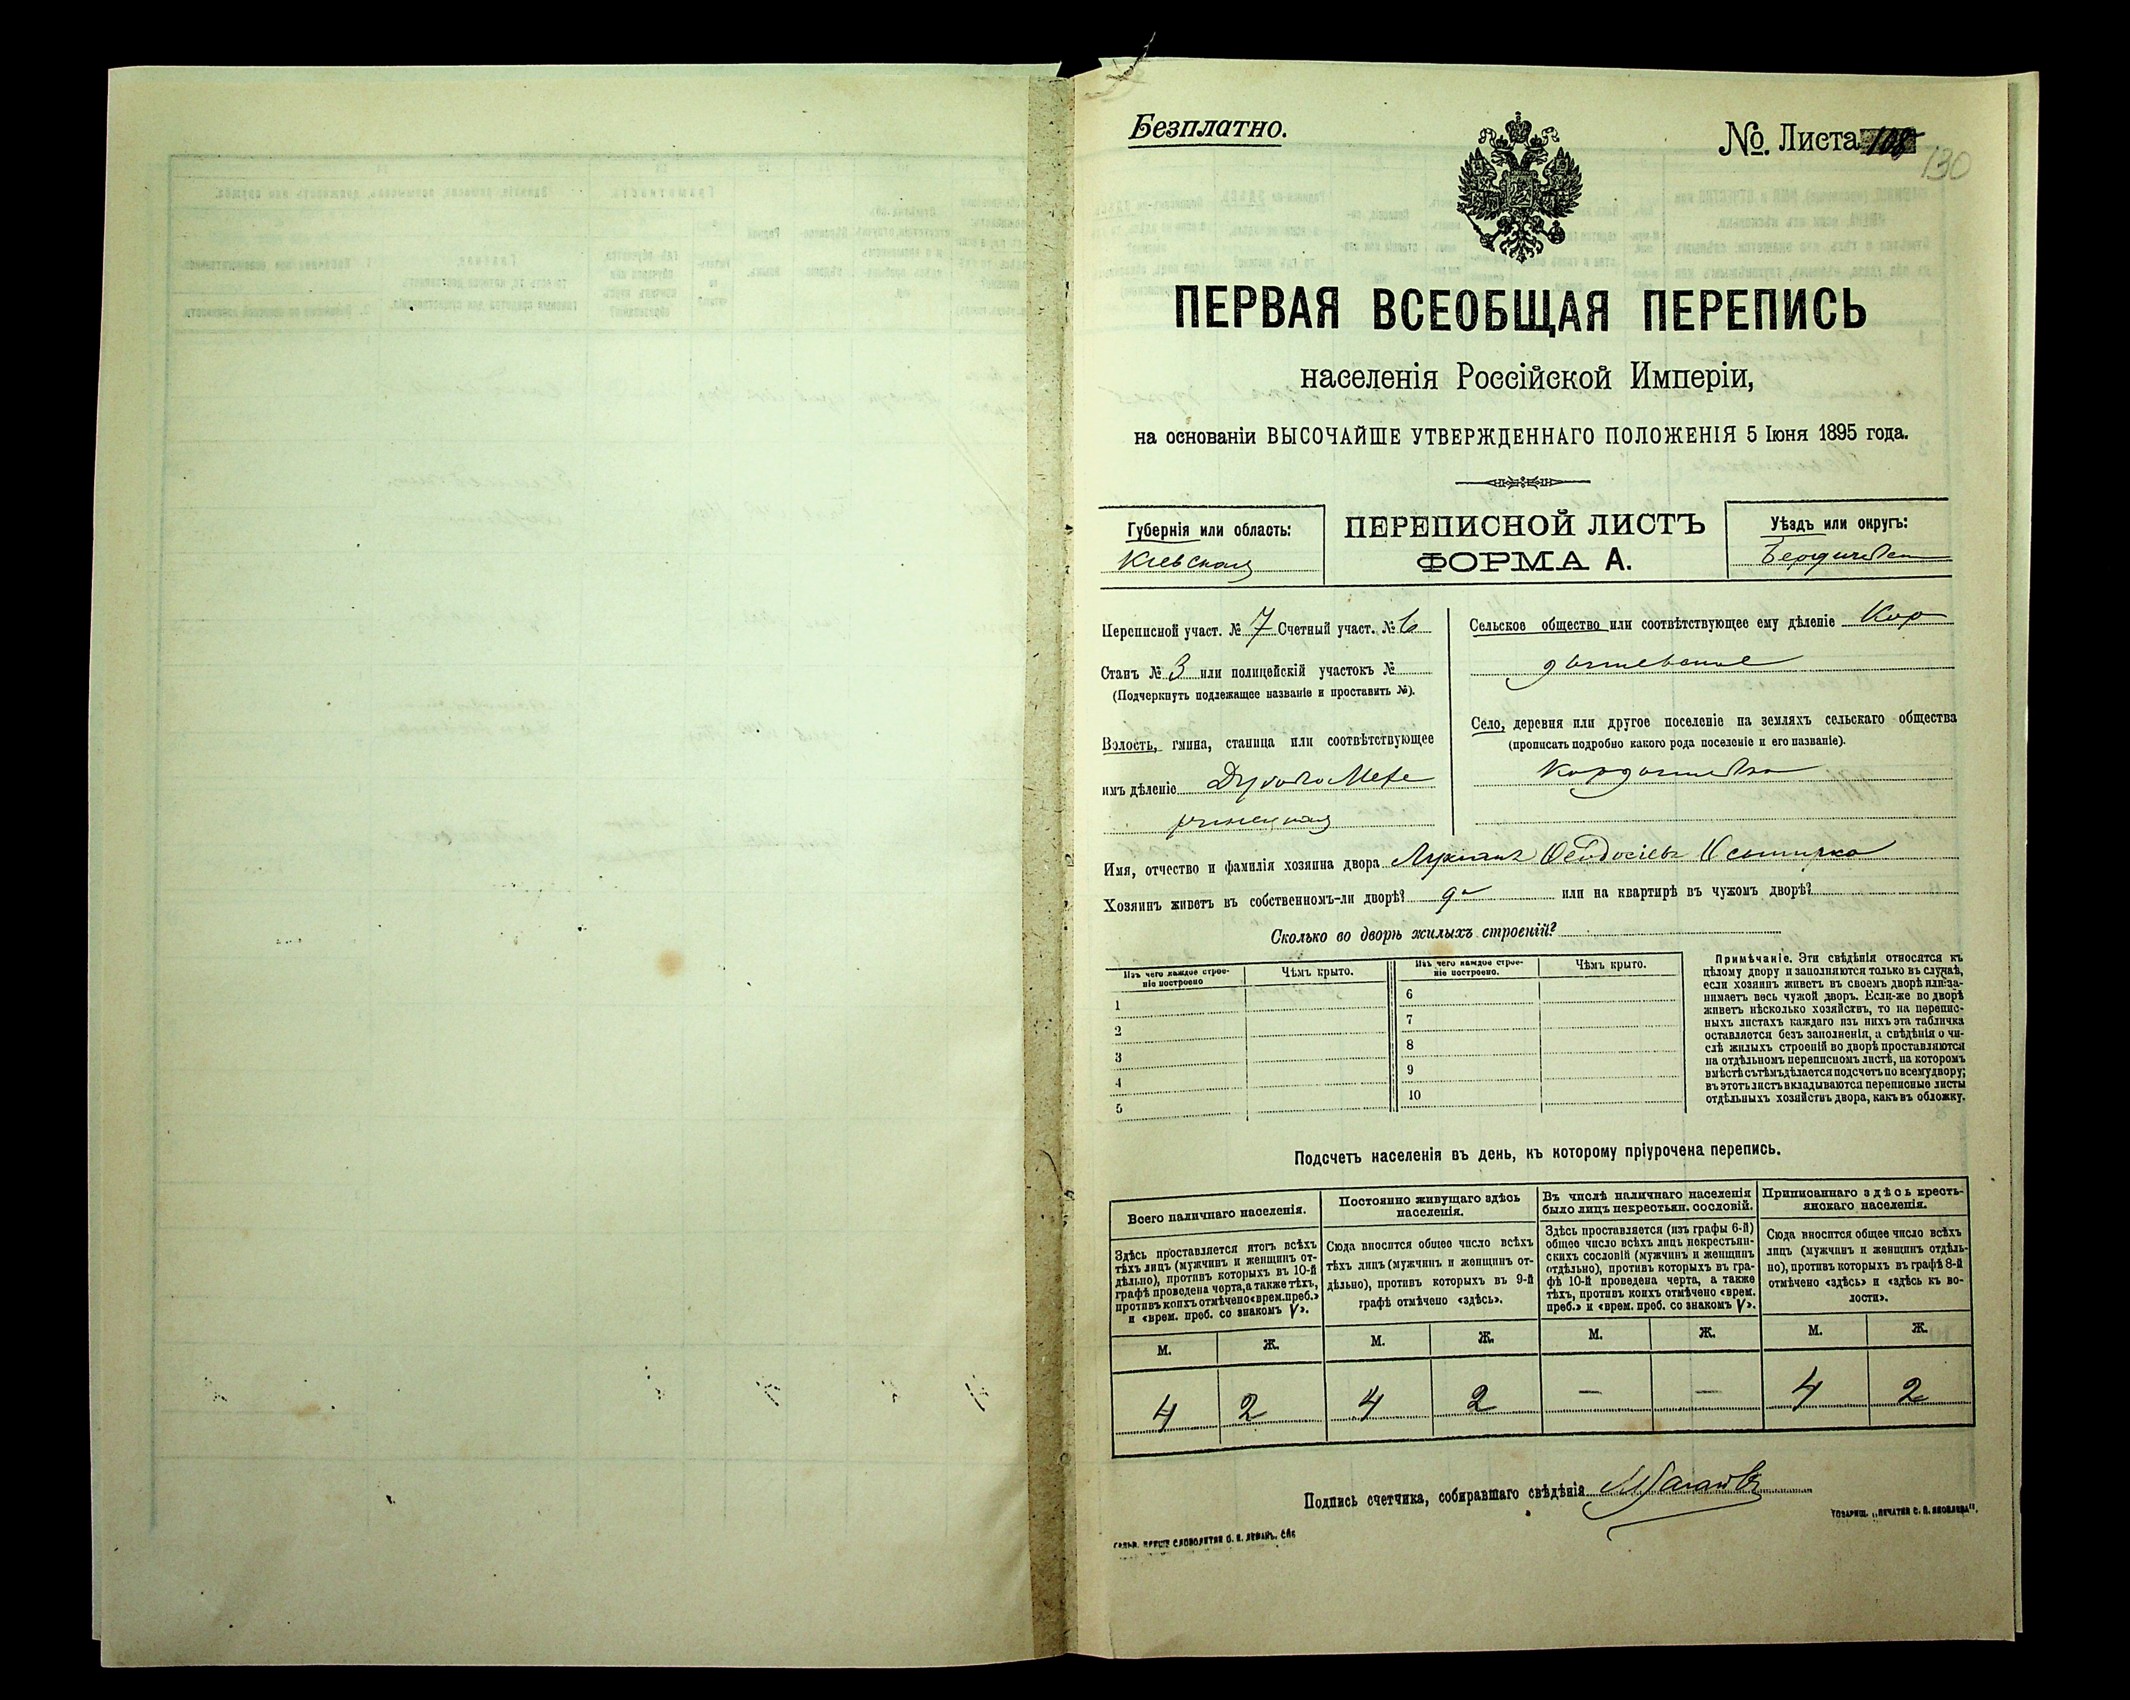 Безплатно.
№. Листа 108
130
ПЕРВАЯ ВСЕОБЩАЯ ПЕРЕПИСЬ
населенія Россійской Имперіи,
на основаніи ВЫСОЧАЙШЕ УТВЕРЖДЕННАГО ПОЛОЖЕНІЯ 5 Іюня 1895 года.
Губернія или область:
Кіевская
ПЕРЕПИСНОЙ ЛИСТЪ
ФОРМА А.
Уѣздъ или округъ:
Бердичевск
Переписной участ. № 7 Счетный участ. № 6
Станъ № 3 или полицейскій участокъ №
(Подчеркнуть подлежащее названіе и проставить №).
Волость, гмина, станица или соотвѣтствующее
имъ дѣленіе
Сельское общество или соотвѣтствующее ему дѣленіе Кор
дышевское
Село, деревня или другое поселеніе на земляхъ сельскаго общества
(прописать подробно какого рода поселеніе и его названіе).
Кордышевка
Имя, отчество и фамилія хозяина двора Лукіанъ Ѳеодосіевъ
Хозяинъ живетъ въ собственномъ-ли дворѣ? да или на квартирѣ въ чужомъ дворѣ?
Сколько во дворѣ жилыхъ строеній?
Изъ чего каждое строе-
ніе построено
Чѣмъ крыто.
Изъ чего каждое строе-
ніе построено.
Чѣмъ крыто.
1
2
3
4
5
6
7
8
9
10
Примѣчаніе. Эти свѣдѣнія относятся къ
цѣлому двору и заполняются только въ случаѣ,
если хозяинъ живетъ въ своемъ дворѣ или за-
нимаетъ весь чужой дворъ. Если-же во дворѣ
живетъ нѣсколько хозяйствъ, то на перепис-
ныхъ листахъ каждаго изъ нихъ эта табличка
оставляется безъ заполненія, а свѣдѣнія о чи-
слѣ жилыхъ строеній во дворѣ проставляются
на отдѣльномъ переписномъ листѣ, на которомъ
вмѣстѣ съ тѣмъ дѣлается подсчетъ по всему двору;
въ этотъ листъ вкладываются переписные листы
отдѣльныхъ хозяйствъ двора, какъ въ обложку.
Подсчетъ населенія въ день, къ которому пріурочена перепись.
Всего наличнаго населенія.
Здѣсь проставляется итогъ всѣхъ
тѣхъ лицъ (мужчинъ и женщинъ от-
дѣльно), противъ которыхъ въ 10-й
графѣ проведена черта, а также тѣхъ,
противъ коихъ отмѣчено «врем. преб.»
и «врем. преб. со знакомъ V».
Постоянно живущаго здѣсь
населенія.
Сюда вносится общее число всѣхъ
тѣхъ лицъ (мужчинъ и женщинъ от-
дѣльно), противъ которыхъ въ 9-й
графѣ отмѣчено «здѣсь».
Въ числѣ наличнаго населенія
было лицъ некрестьян. сословій.
Здѣсь проставляется (изъ графы 6-й)
общее число всѣхъ лицъ некрестьян-
скихъ сословій (мужчинъ и женщинъ
отдѣльно), противъ которыхъ въ гра-
фѣ 10-й проведена черта, а также
тѣхъ, противъ коихъ отмѣчено «врем.
преб.» и «врем. преб. со знакомъ V».
Приписаннаго здѣсь кресть-
янскаго населенія.
Сюда вносится общее число всѣхъ
лицъ (мужчинъ и женщинъ отдѣль-
но), противъ которыхъ въ графѣ 8-й
отмѣчено «здѣсь» и «здѣсь къ во-
лости».
М. Ж. М. Ж. М. Ж. М. Ж.
4 2 4 2 — — 4 2
Подпись счетчика, собиравшаго свѣдѣнія
Товарищ. „Печатня С. П. Яковлева".